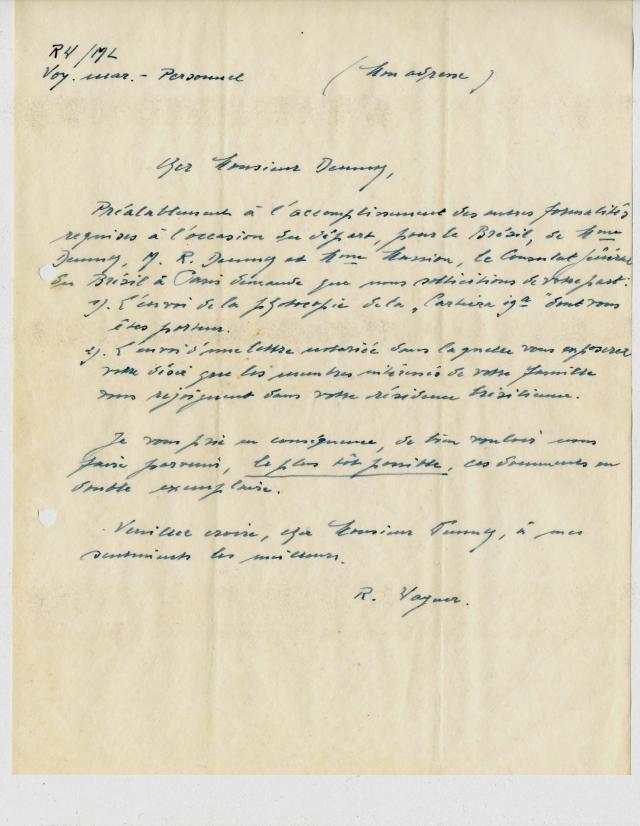 RV/ML
Voy. mar. - Personnel (Mon adresse)
Cher Monsieur
Préalablement à l'accomplissement des autres formalités
requises à l'occasion du départ, pour le Brésil, de Mme
M. R. et Mme le Consulat Général
du Brésil à Paris demande que nous sollicitions de votre part :
1). L'envoi de la photocopie de la „Carteira 19a" dont vous
êtes porteur.
2). L'envoi d'une lettre notariée dans laquelle vous exposerez
votre désir que les membres intéressés de votre famille
vous rejoignent dans votre résidence brésilienne.
Je vous prie en conséquence, de bien vouloir nous
faire parvenir, le plus tôt possible, ces documents en
double exemplaire.
Veuillez croire, cher Monsieur à mes
sentiments les meilleurs.
R.